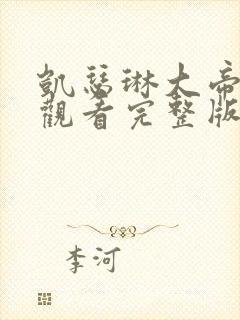 凱瑟琳大帝
觀看完整版
李河